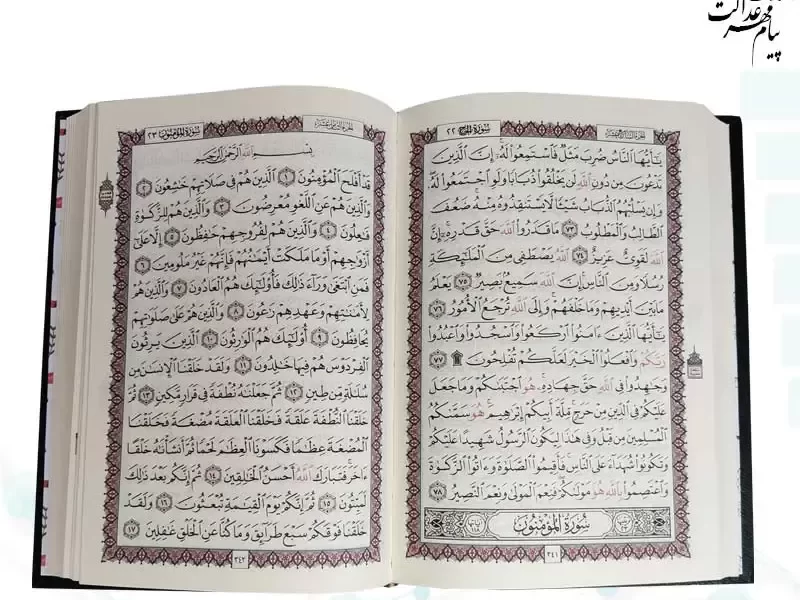 پیام مهر عدالت
سورة الحج ٢٢
يَٰٓأَيُّهَا ٱلنَّاسُ ضُرِبَ مَثَلٌ فَٱسْتَمِعُوا۟ لَهُۥٓ إِنَّ ٱلَّذِينَ
تَدْعُونَ مِن دُونِ ٱللَّهِ لَن يَخْلُقُوا۟ ذُبَابًا وَلَوِ ٱجْتَمَعُوا۟ لَهُۥ
وَإِن يَسْلُبْهُمُ ٱلذُّبَابُ شَيْـًٔا لَّا يَسْتَنقِذُوهُ مِنْهُ ضَعُفَ
ٱلطَّالِبُ وَٱلْمَطْلُوبُ ٧٣ مَا قَدَرُوا۟ ٱللَّهَ حَقَّ قَدْرِهِۦٓ إِنَّ
ٱللَّهَ لَقَوِىٌّ عَزِيزٌ ٧٤ ٱللَّهُ يَصْطَفِى مِنَ ٱلْمَلَٰٓئِكَةِ
رُسُلًا وَمِنَ ٱلنَّاسِ إِنَّ ٱللَّهَ سَمِيعٌۢ بَصِيرٌ ٧٥ يَعْلَمُ
مَا بَيْنَ أَيْدِيهِمْ وَمَا خَلْفَهُمْ وَإِلَى ٱللَّهِ تُرْجَعُ ٱلْأُمُورُ ٧٦
يَٰٓأَيُّهَا ٱلَّذِينَ ءَامَنُوا۟ ٱرْكَعُوا۟ وَٱسْجُدُوا۟ وَٱعْبُدُوا۟
رَبَّكُمْ وَٱفْعَلُوا۟ ٱلْخَيْرَ لَعَلَّكُمْ تُفْلِحُونَ ۩ ٧٧
وَجَٰهِدُوا۟ فِى ٱللَّهِ حَقَّ جِهَادِهِۦ هُوَ ٱجْتَبَىٰكُمْ وَمَا جَعَلَ
عَلَيْكُمْ فِى ٱلدِّينِ مِنْ حَرَجٍ مِّلَّةَ أَبِيكُمْ إِبْرَٰهِيمَ هُوَ سَمَّىٰكُمُ
ٱلْمُسْلِمِينَ مِن قَبْلُ وَفِى هَٰذَا لِيَكُونَ ٱلرَّسُولُ شَهِيدًا عَلَيْكُمْ
وَتَكُونُوا۟ شُهَدَآءَ عَلَى ٱلنَّاسِ فَأَقِيمُوا۟ ٱلصَّلَوٰةَ وَءَاتُوا۟ ٱلزَّكَوٰةَ
وَٱعْتَصِمُوا۟ بِٱللَّهِ هُوَ مَوْلَىٰكُمْ فَنِعْمَ ٱلْمَوْلَىٰ وَنِعْمَ ٱلنَّصِيرُ ٧٨
سُورَةُ المُؤْمِنُونَ
٣٤١
سورة المؤمنون ٢٣
بِسْمِ ٱللَّهِ ٱلرَّحْمَٰنِ ٱلرَّحِيمِ
قَدْ أَفْلَحَ ٱلْمُؤْمِنُونَ ١ ٱلَّذِينَ هُمْ فِى صَلَاتِهِمْ خَٰشِعُونَ ٢
وَٱلَّذِينَ هُمْ عَنِ ٱللَّغْوِ مُعْرِضُونَ ٣ وَٱلَّذِينَ هُمْ لِلزَّكَوٰةِ
فَٰعِلُونَ ٤ وَٱلَّذِينَ هُمْ لِفُرُوجِهِمْ حَٰفِظُونَ ٥ إِلَّا عَلَىٰٓ
أَزْوَٰجِهِمْ أَوْ مَا مَلَكَتْ أَيْمَٰنُهُمْ فَإِنَّهُمْ غَيْرُ مَلُومِينَ ٦
فَمَنِ ٱبْتَغَىٰ وَرَآءَ ذَٰلِكَ فَأُو۟لَٰٓئِكَ هُمُ ٱلْعَادُونَ ٧ وَٱلَّذِينَ هُمْ
لِأَمَٰنَٰتِهِمْ وَعَهْدِهِمْ رَٰعُونَ ٨ وَٱلَّذِينَ هُمْ عَلَىٰ صَلَوَٰتِهِمْ
يُحَافِظُونَ ٩ أُو۟لَٰٓئِكَ هُمُ ٱلْوَٰرِثُونَ ١٠ ٱلَّذِينَ يَرِثُونَ
ٱلْفِرْدَوْسَ هُمْ فِيهَا خَٰلِدُونَ ١١ وَلَقَدْ خَلَقْنَا ٱلْإِنسَٰنَ مِن
سُلَٰلَةٍ مِّن طِينٍ ١٢ ثُمَّ جَعَلْنَٰهُ نُطْفَةً فِى قَرَارٍ مَّكِينٍ ١٣ ثُمَّ
خَلَقْنَا ٱلنُّطْفَةَ عَلَقَةً فَخَلَقْنَا ٱلْعَلَقَةَ مُضْغَةً فَخَلَقْنَا
ٱلْمُضْغَةَ عِظَٰمًا فَكَسَوْنَا ٱلْعِظَٰمَ لَحْمًا ثُمَّ أَنشَأْنَٰهُ خَلْقًا
ءَاخَرَ فَتَبَارَكَ ٱللَّهُ أَحْسَنُ ٱلْخَٰلِقِينَ ١٤ ثُمَّ إِنَّكُم بَعْدَ ذَٰلِكَ
لَمَيِّتُونَ ١٥ ثُمَّ إِنَّكُمْ يَوْمَ ٱلْقِيَٰمَةِ تُبْعَثُونَ ١٦ وَلَقَدْ
خَلَقْنَا فَوْقَكُمْ سَبْعَ طَرَآئِقَ وَمَا كُنَّا عَنِ ٱلْخَلْقِ غَٰفِلِينَ ١٧
٣٤٢